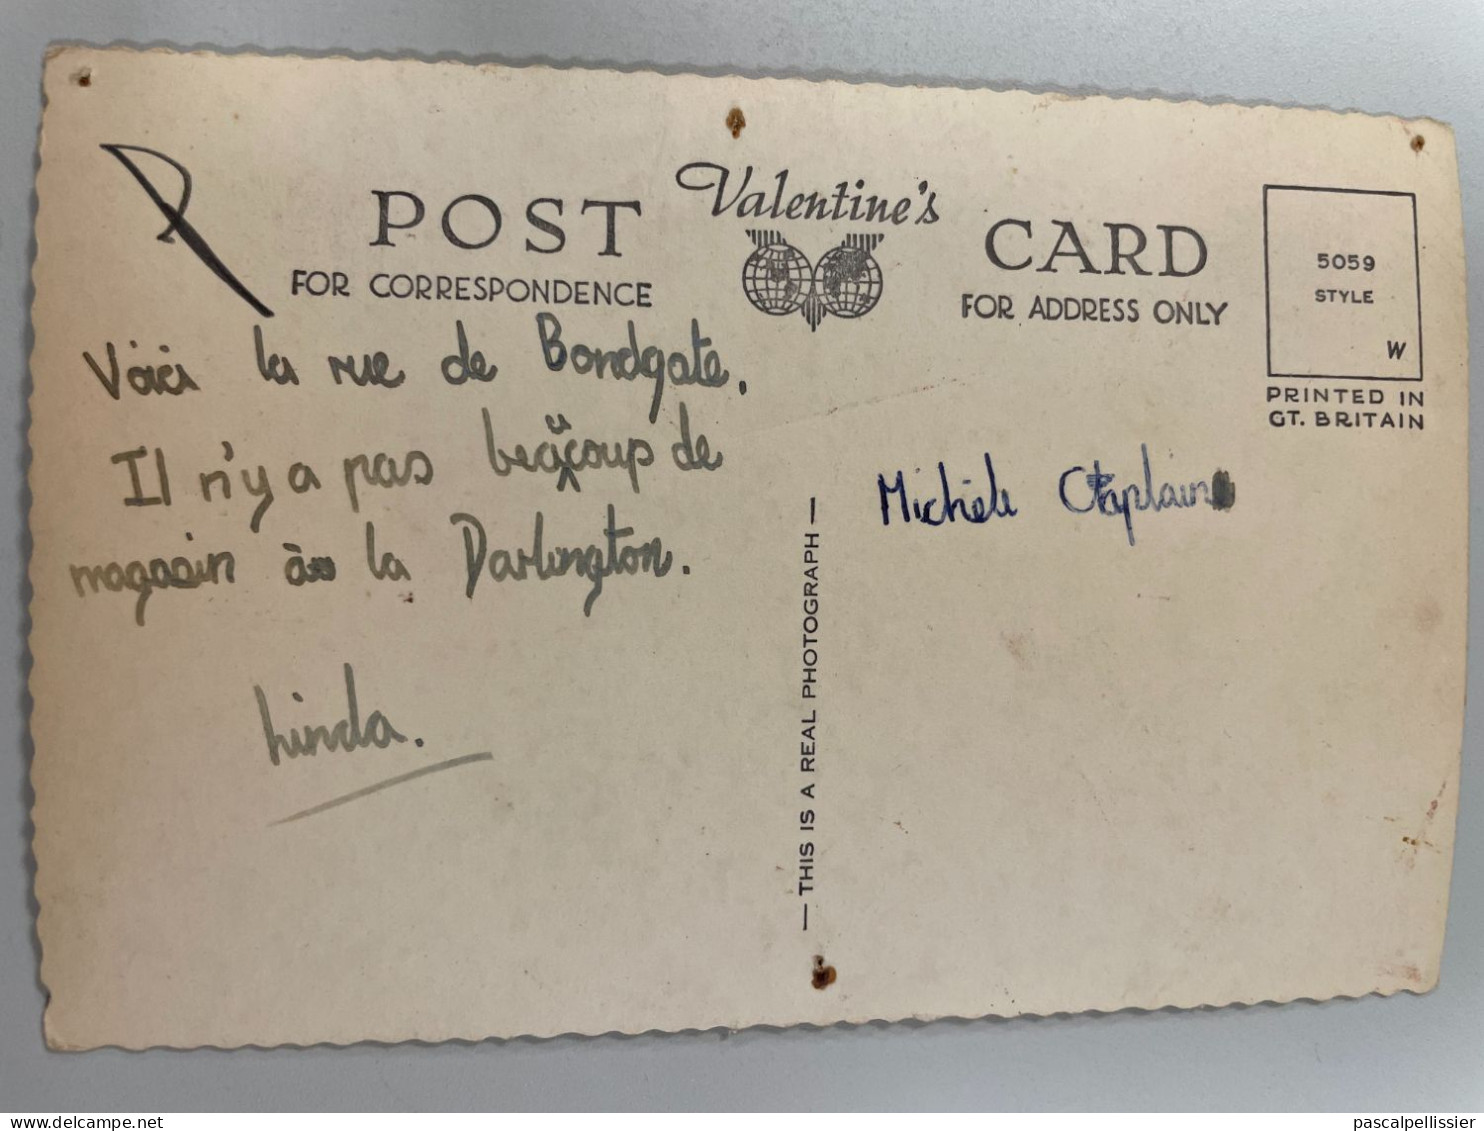 Valentine's
POST CARD
FOR CORRESPONDENCE
FOR ADDRESS ONLY
5059
STYLE
W
PRINTED IN
GT. BRITAIN
Voici la rue de Bondgate.
Il n'y a pas beaucoup de
magasin à la Darlington.
Linda.
— THIS IS A REAL PHOTOGRAPH —
Michèle
pascalpellissier